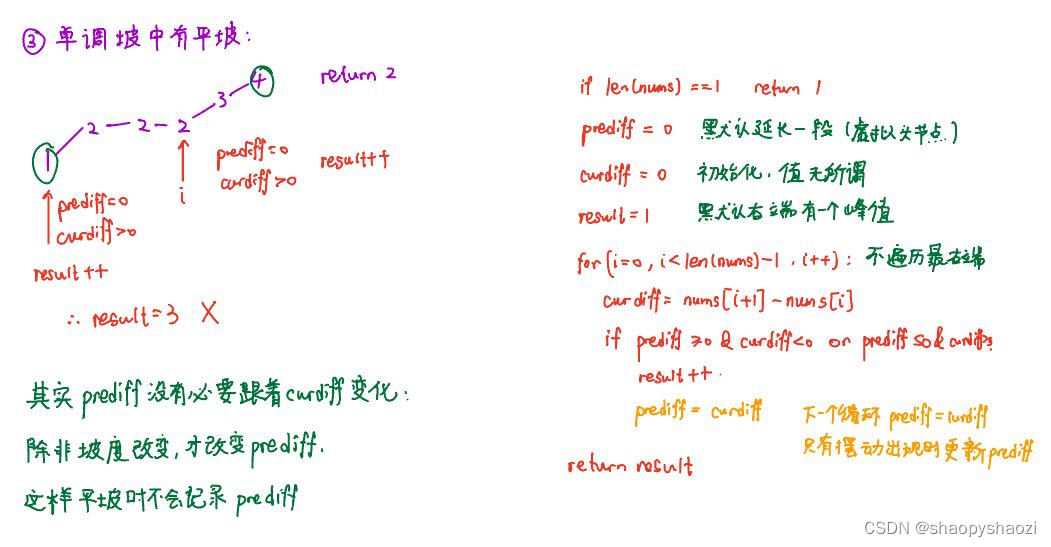 ③ 单调坡中有平坡:
return 2
1 2 2 2 3 4
prediff=0
curdiff>0
result++
i
prediff=0
curdiff>0
result++
∴ result=3 X
其实 prediff 没有必要跟着 curdiff 变化:
除非坡度改变,才改变 prediff.
这样平坡时不会记录 prediff
if len(nums) ==1 return 1
prediff = 0 默认延长一段 (虚拟头节点)
curdiff = 0 初始化, 值无所谓
result=1 默认右端有一个峰值
for (i=0, i<len(nums)-1, i++): 不遍历最右端
curdiff = nums[i+1]-nums[i]
if prediff ≥0 & curdiff<0 or prediff ≤0 &
result++
prediff = curdiff 下一个循环 prediff=curdiff
只有摆动出现时更新 prediff
return result
CSDN @shaopyshaozi